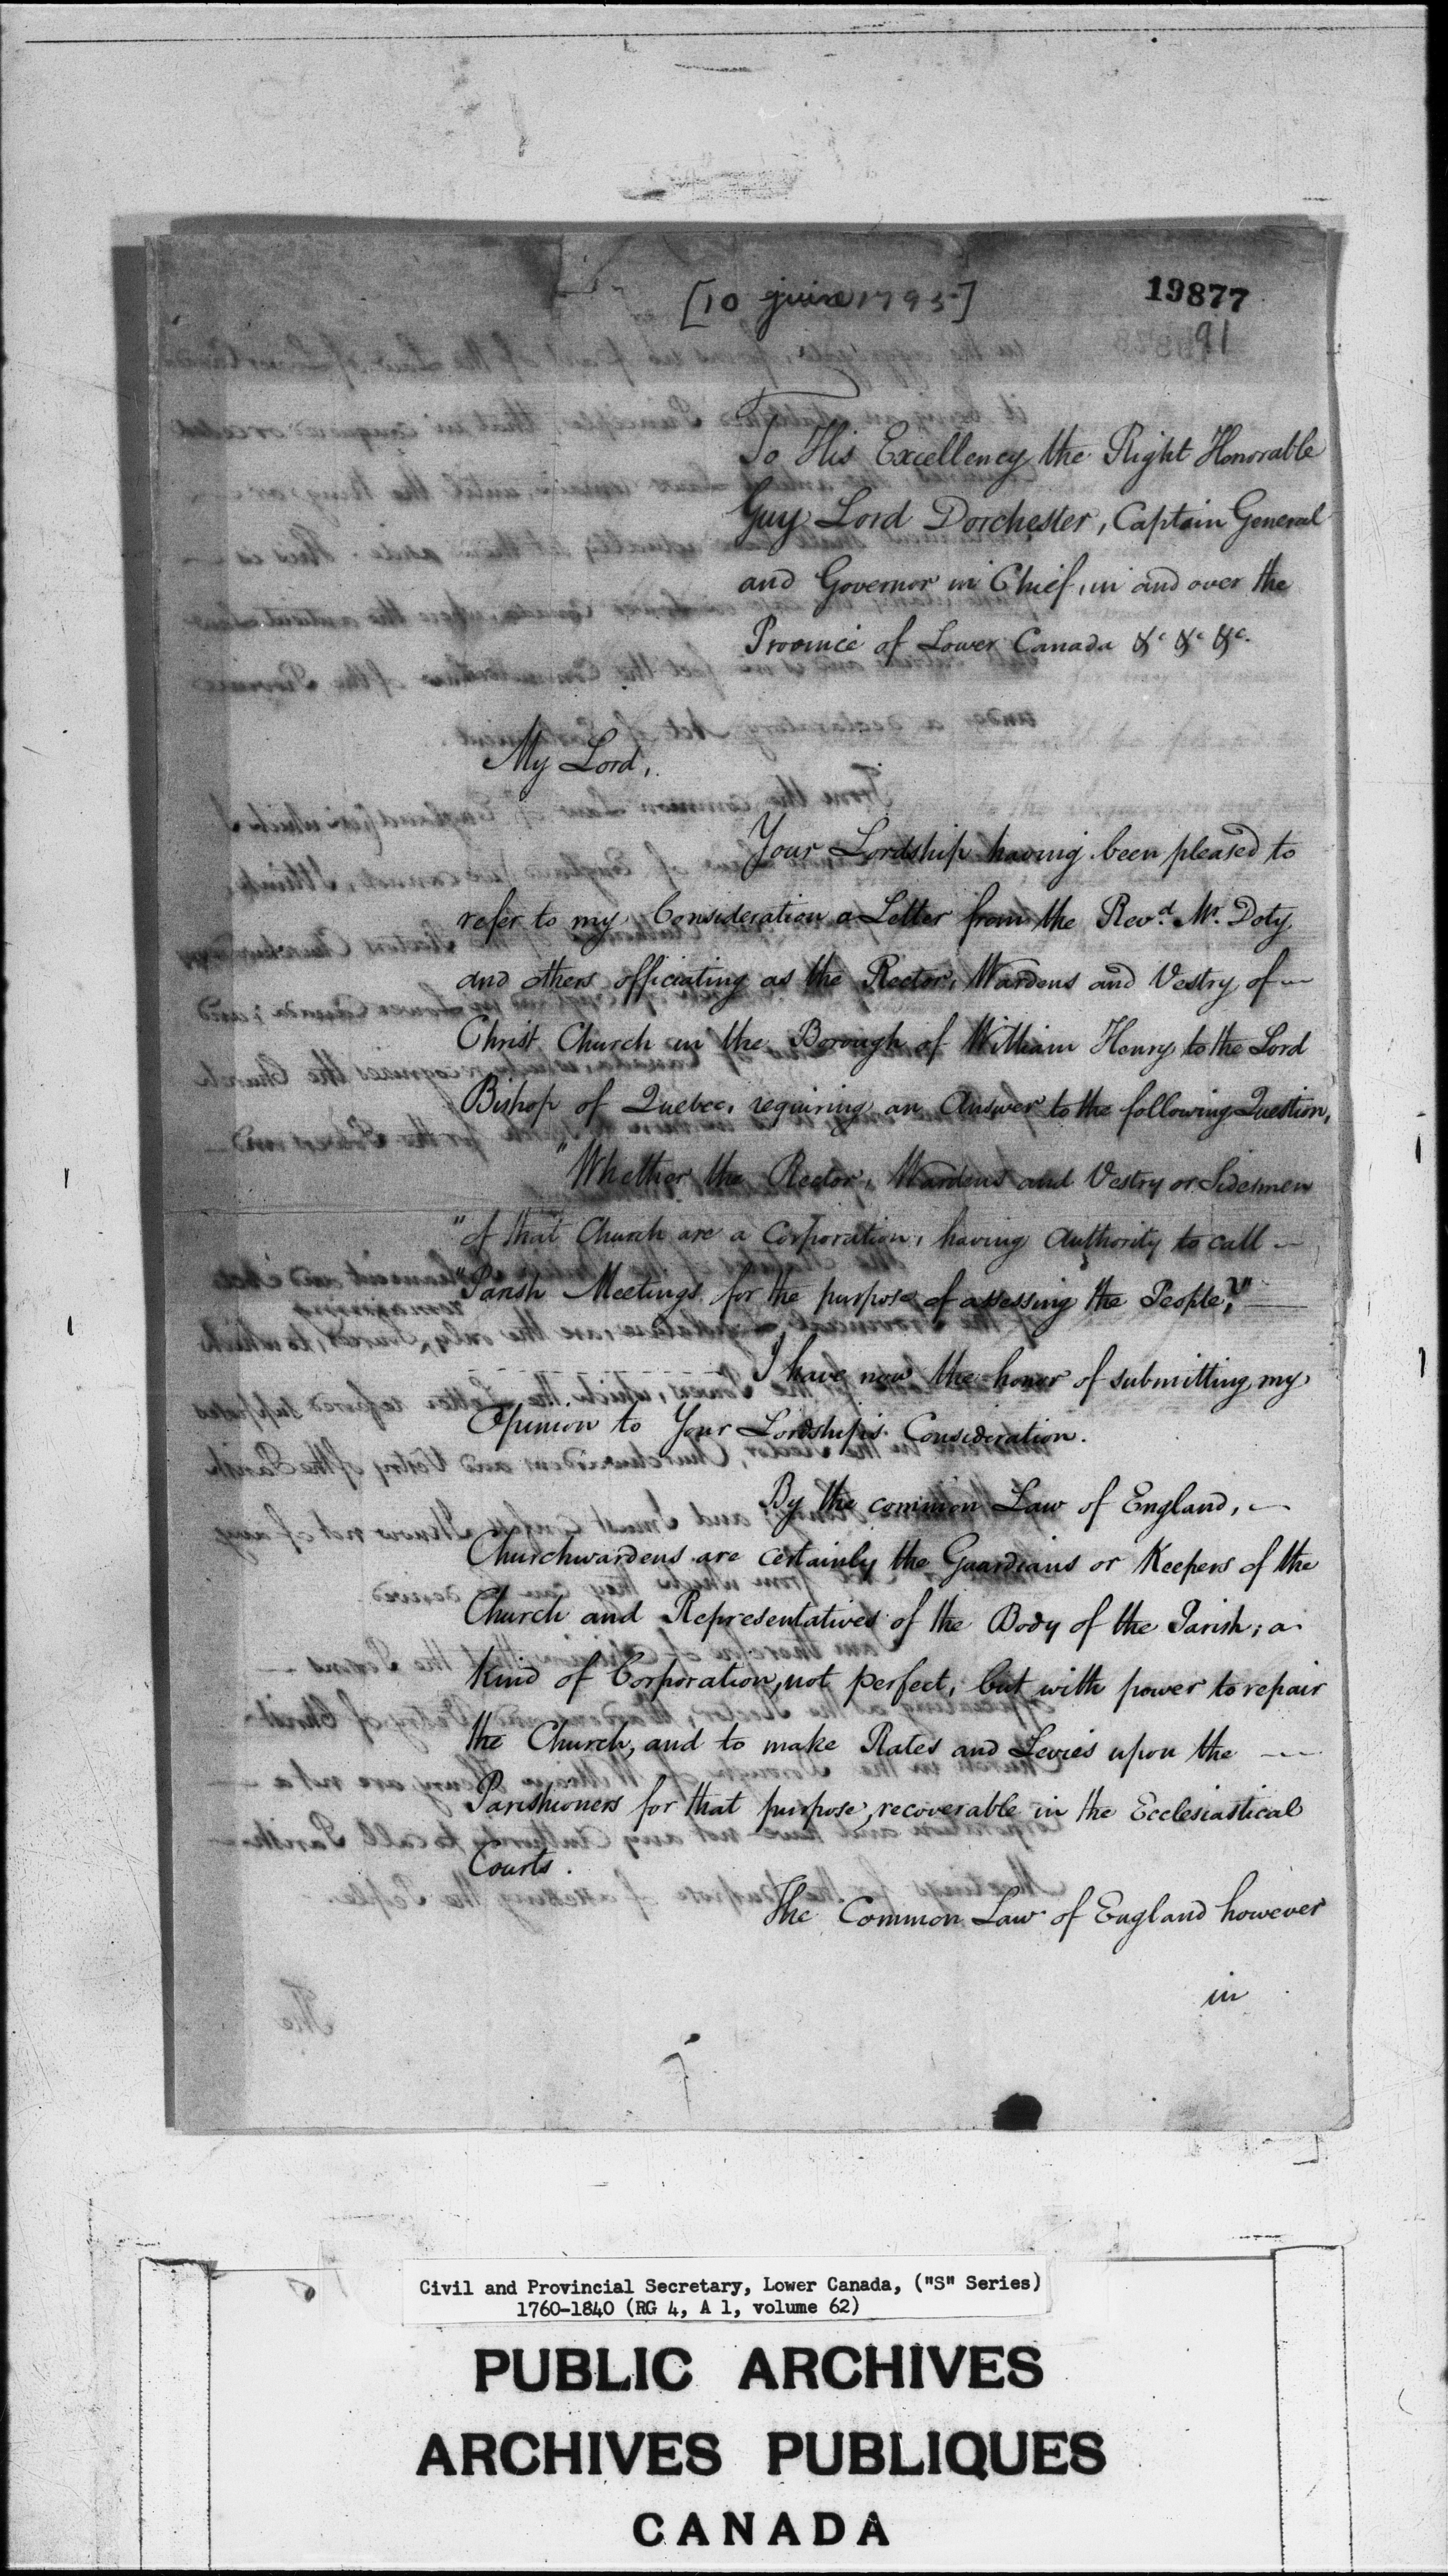 [10 juin 1795]
19877
91
To His Excellency the Right Honorable
Guy Lord Dorchester, Captain General
and Governor in Chief, in and over the
Province of Lower Canada &c &c &c.
My Lord,
Your Lordship having been pleased to
refer to my Consideration a Letter from the Revd. Mr. Doty
and others officiating as the Rector, Wardens and Vestry of —
Christ Church in the Borough of William Henry to the Lord
Bishop of Quebec, requiring an Answer to the following Question,
"Whether the Rector, Wardens and Vestry or Sidesmen
"of that Church are a Corporation, having Authority to call —
"Parish Meetings for the purpose of assessing the People?" —
I have now the honor of submitting my
Opinion to Your Lordship's Consideration.
By the common Law of England, —
Churchwardens are certainly the Guardians or Keepers of the
Church and Representatives of the Body of the Parish; a
kind of Corporation, not perfect, but with power to repair
the Church, and to make Rates and Levies upon the —
Parishioners for that purpose, recoverable in the Ecclesiastical
Courts.
The Common Law of England however
in
Civil and Provincial Secretary, Lower Canada, ("S" Series)
1760-1840 (RG 4, A 1, volume 62)
PUBLIC ARCHIVES
ARCHIVES PUBLIQUES
CANADA